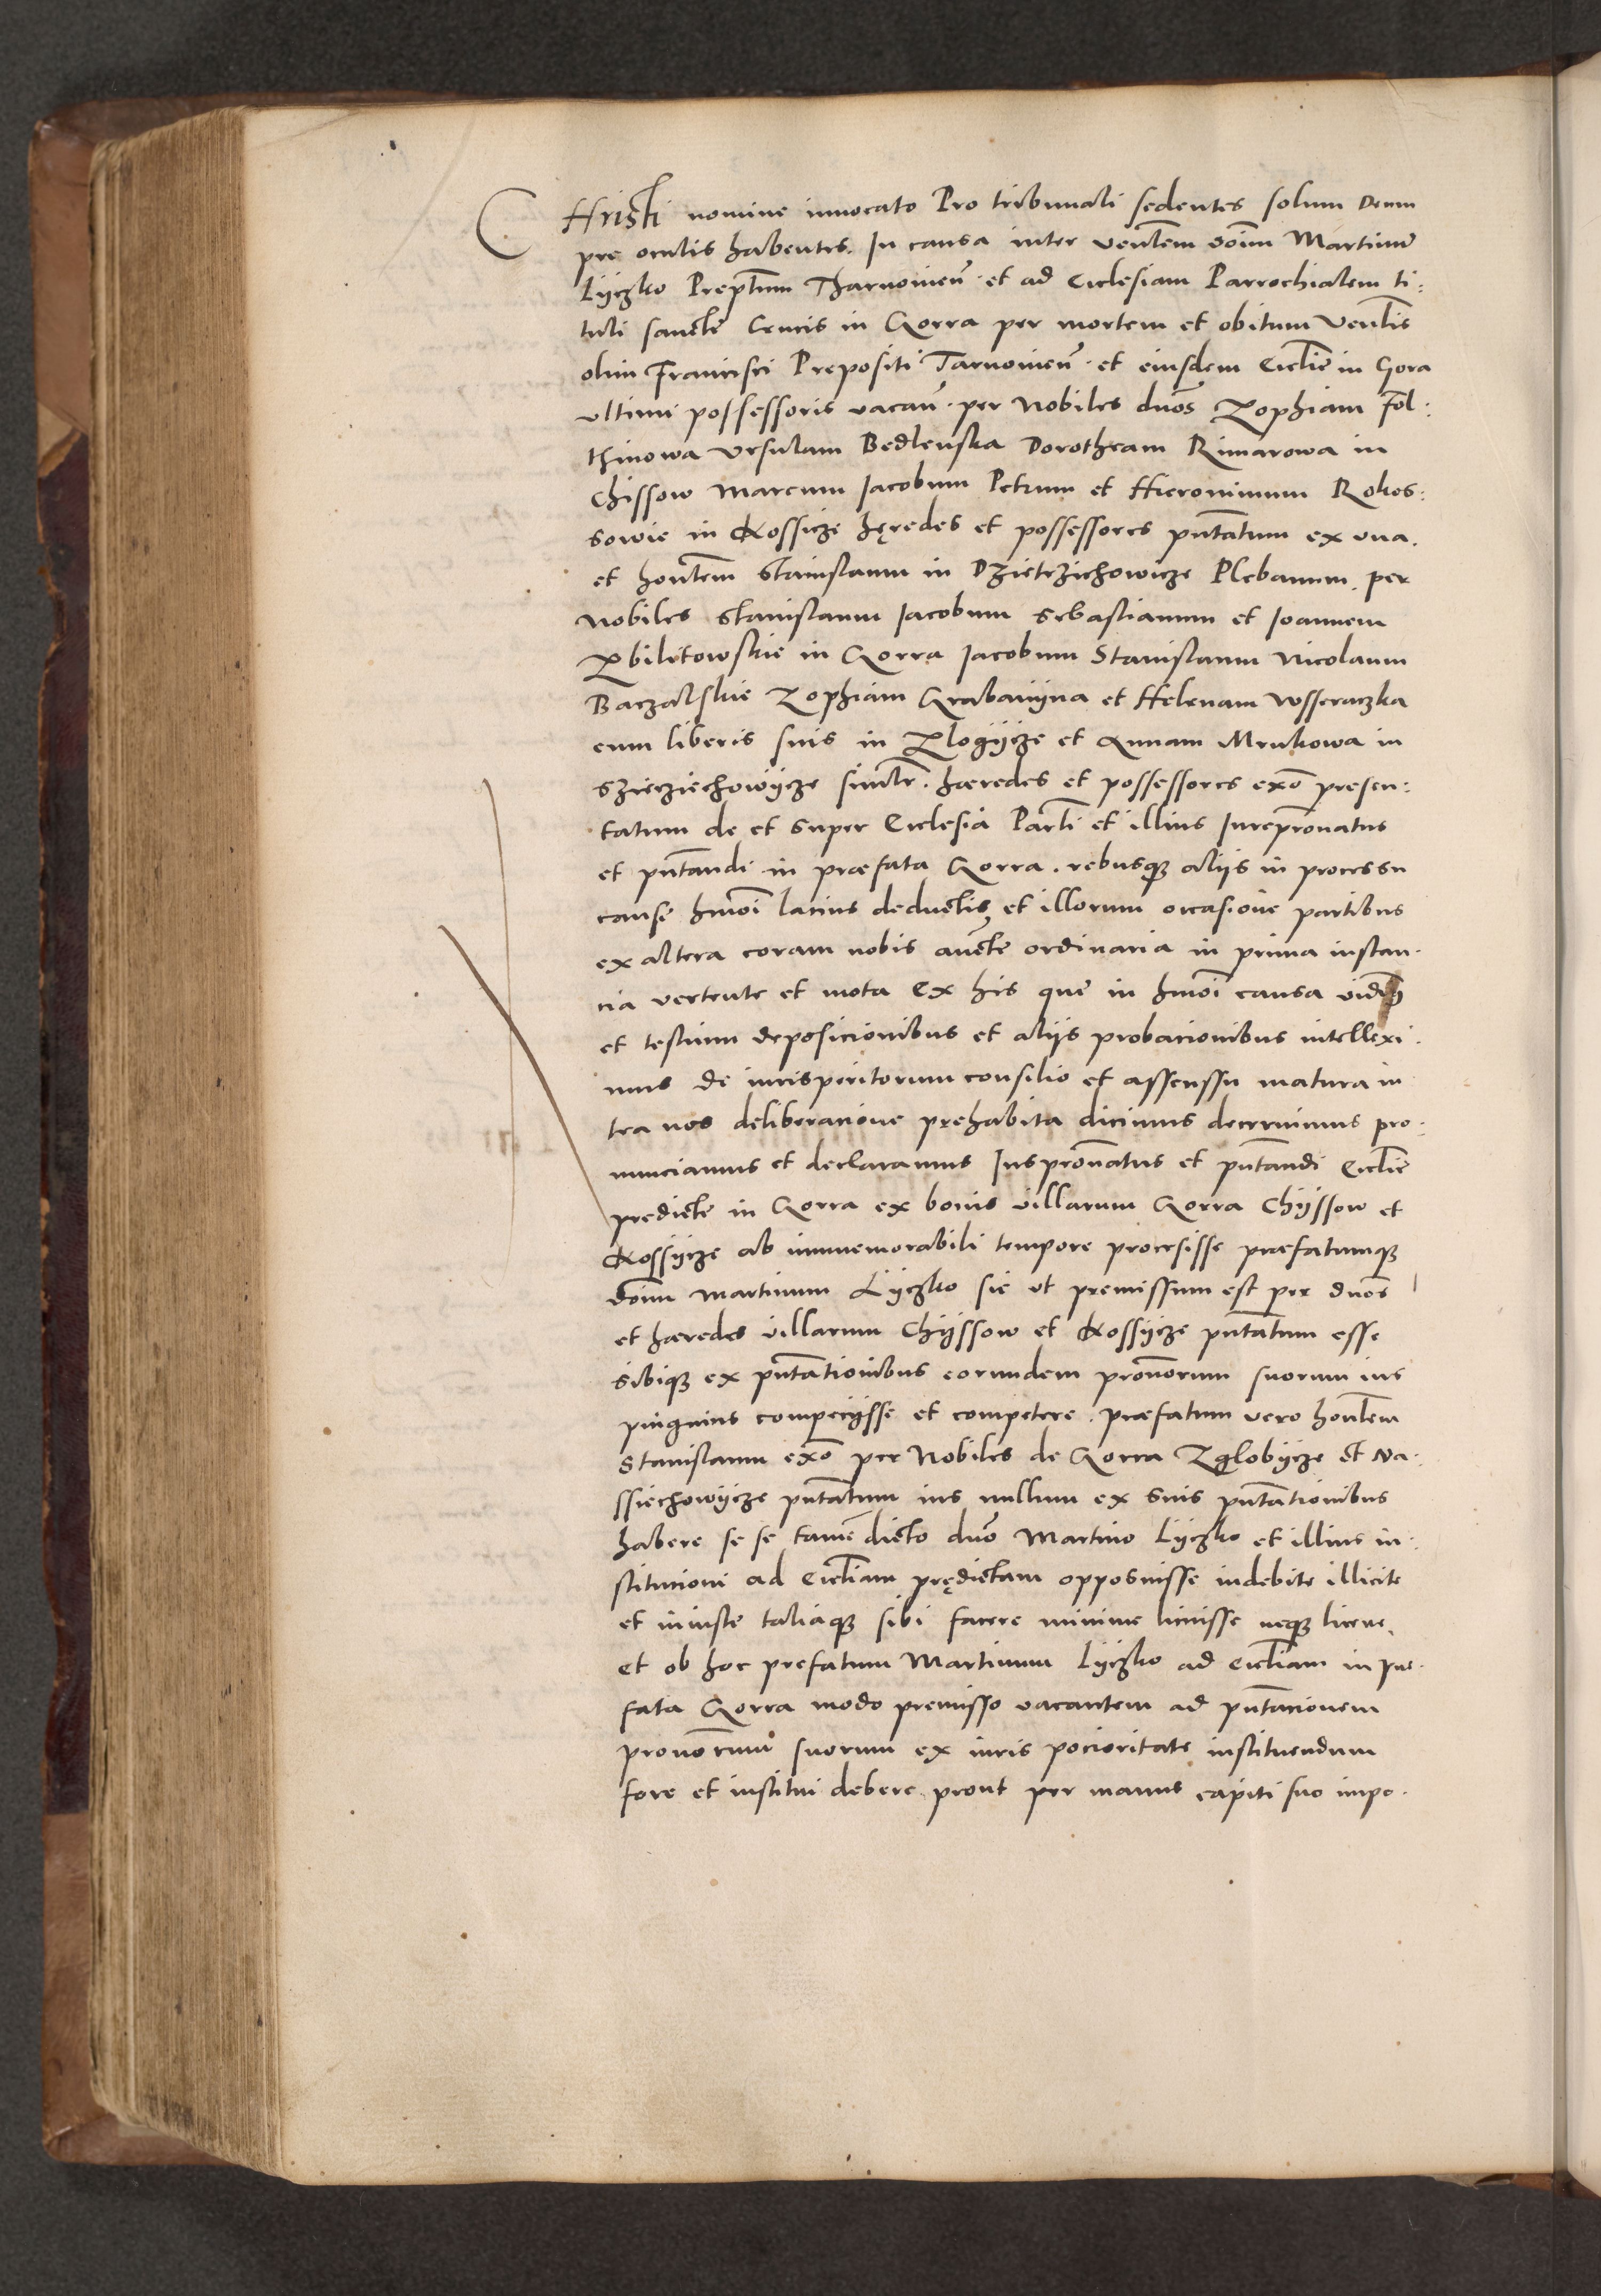 CHristi nomine invocato Pro tribunali sedentes solum Deum
pre oculis habentes. In causa inter venlem dnm Martinum
Lyczko Preptum Tharnovien. et ad Ecclesiam Parrochialem ti:
tuli sancte Crucis in Gorra per mortem et obitum Venlis
olim Francisci Prepositi Tarnovien. et eiusdem Ecclie in Gora
ultimi possessoris vacan. per Nobiles dnos Zophiam Fol:
thinowa Ursulam Bedlenska Dorotheam Rimarowa in
Chissow Marcum Jacobum Petrum et Hieronimum Rokos:
sowie in Kossicze hęredes et possessores pntatum ex una.
et honlem Stanislaum in Dzietrzichowicze Plebanum. per
Nobiles Stanislaum Jacobum Sebastianum et Joannem
Zbilitowskie in Gorra Jacobum Stanislaum Nicolaum
Baczalskie Zophiam Grabanyna et Helenam
cum liberis suis in et Annam Mrukowa in
Szieciechowycze similr. hæredes et possessores exo presen:
tatum de et super Ecclesia Parli et illius Iurepronatus
et pntandi in præfata Gorra. rebusq aliis in processu
cause hmoi latius deductis et illorum occasione partibus
ex altera coram nobis aucte ordinaria in prima instan.
cia vertente et mota Ex his que in hmoi causa vidim9
et testium deposicionibus et aliis probacionibus intellexi.
mus de iurisperitorum consilio et assenssu matura in
tra nos deliberacione prehabita dicimus decrevimus pro:
nunciamus et declaramus Iuspronatus et pntandi Ecclie
predicte in Gorra ex bonis villarum Gorra Chyssow et
Kossycze ab immemorabili tempore processisse præfatumq
dnm Martinum Lyczko sic ut premissum est per dnos
et hæredes villarum Chyssow et Kossycze pntatum esse
sibiq ex pntationibus eorundem pronorum suorum ius
pinguius compecysse et competere. præfatum vero honlem
Stanislaum exo per Nobiles de Gorra Zglobycze et
ssiechowycze pntatum ius nullum ex suis pntationibus
habere se se tamē dicto dno Martino Lyczko et illius in:
stitucioni ad Eccliam prędictam opposuisse indebite illicite
et iniuste taliaq sibi facere minime licuisse neq licere.
et ob hoc prefatum Martinum Lyczko ad eccliam in pre.
fata Gorra modo premisso vacantem ad pntacionem
pronorum suorum ex iuris pocioritate instituendum
fore et institui debere prout per manus capiti suo impo.